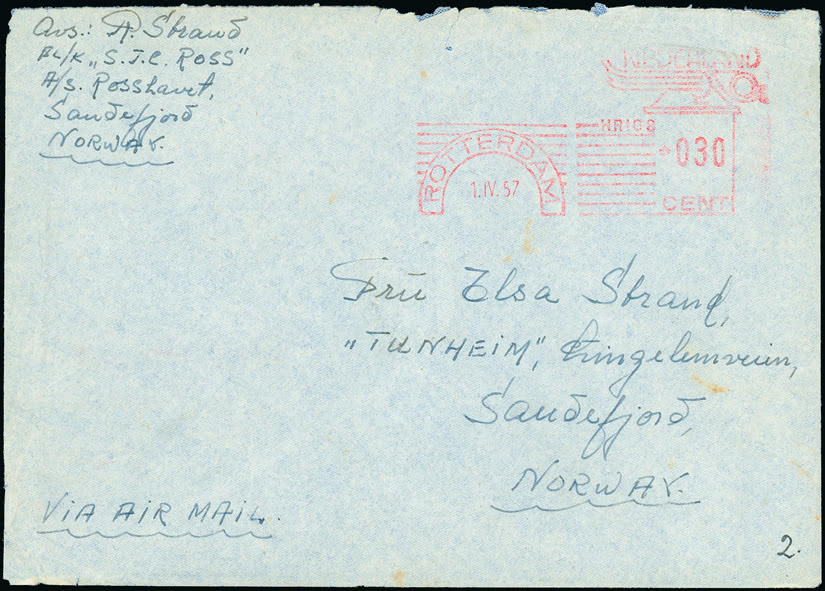 Avs.: A. Strand
BL/K „S.T.C. ROSS"
A/S. Rosshavet,
Sandefjord
NORWAY.
NEDERLAND
HR106
ROTTERDAM
1.IV.57
030
CENT
Fru Elsa Strand,
„TUNHEIM",
Sandefjord,
NORWAY.
VIA AIR MAIL.
2.